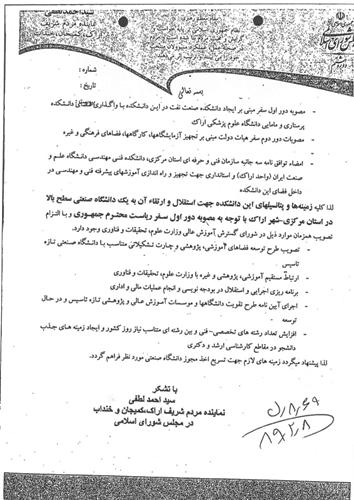 سید احمد لطفی
نماینده مردم شریف
اراک، کمیجان و خنداب
شماره :
تاریخ :
بسمه تعالی
- مصوبه دور اول سفر مبنی بر ایجاد دانشکده صنعت نفت در این دانشکده با واگذاری دانشکده
پرستاری و مامایی دانشگاه علوم پزشکی اراک
- مصوبات دور دوم سفر هیات دولت مبنی بر تجهیز آزمایشگاهها، کارگاهها، فضاهای فرهنگی و غیره
- امضاء توافق نامه سه جانبه سازمان فنی و حرفه ای استان مرکزی، دانشکده فنی مهندسی دانشگاه علم و
صنعت ایران (واحد اراک) و استانداری جهت تجهیز و راه اندازی آموزشهای پیشرفته فنی و مهندسی در
داخل فضای این دانشکده
لذا کلیه زمینه‌ها و پتانسیلهای این دانشکده جهت استقلال و ارتقاء آن به یک دانشگاه صنعتی سطح بالا
در استان مرکزی-شهر اراک با توجه به مصوبه دور اول سفر ریاست محترم جمهوری و با التزام
تصویب همزمان موارد ذیل در شورای گسترش آموزش عالی وزارت علوم، تحقیقات و فناوری وجود دارد.
- تصویب طرح توسعه فضاهای آموزشی، پژوهشی و چارت تشکیلاتی متناسب با دانشگاه صنعتی تازه
تاسیس
- ارتباط مستقیم آموزشی، پژوهشی و غیره با وزارت علوم، تحقیقات و فناوری
- برنامه ریزی اجرایی و استقلال در بودجه نویسی و انجام عملیات مالی و اداری
- اجرای آیین نامه طرح تقویت دانشگاهها و موسسات آموزش عالی و پژوهشی تازه تاسیس و در حال
توسعه
- افزایش تعداد رشته های تخصصی-فنی و بین رشته ای متناسب نیاز روز کشور و ایجاد زمینه های جذب
دانشجو در مقاطع کارشناسی ارشد و دکتری
لذا پیشنهاد میگردد زمینه های لازم جهت تسریع اخذ مجوز دانشگاه صنعتی مورد نظر فراهم گردد.
با تشکر
سید احمد لطفی
نماینده مردم شریف اراک،کمیجان و خنداب
در مجلس شورای اسلامی